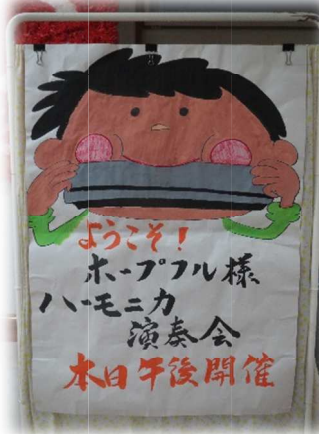 ようこそ!
ホープフル様
ハーモニカ
演奏会
本日午後開催